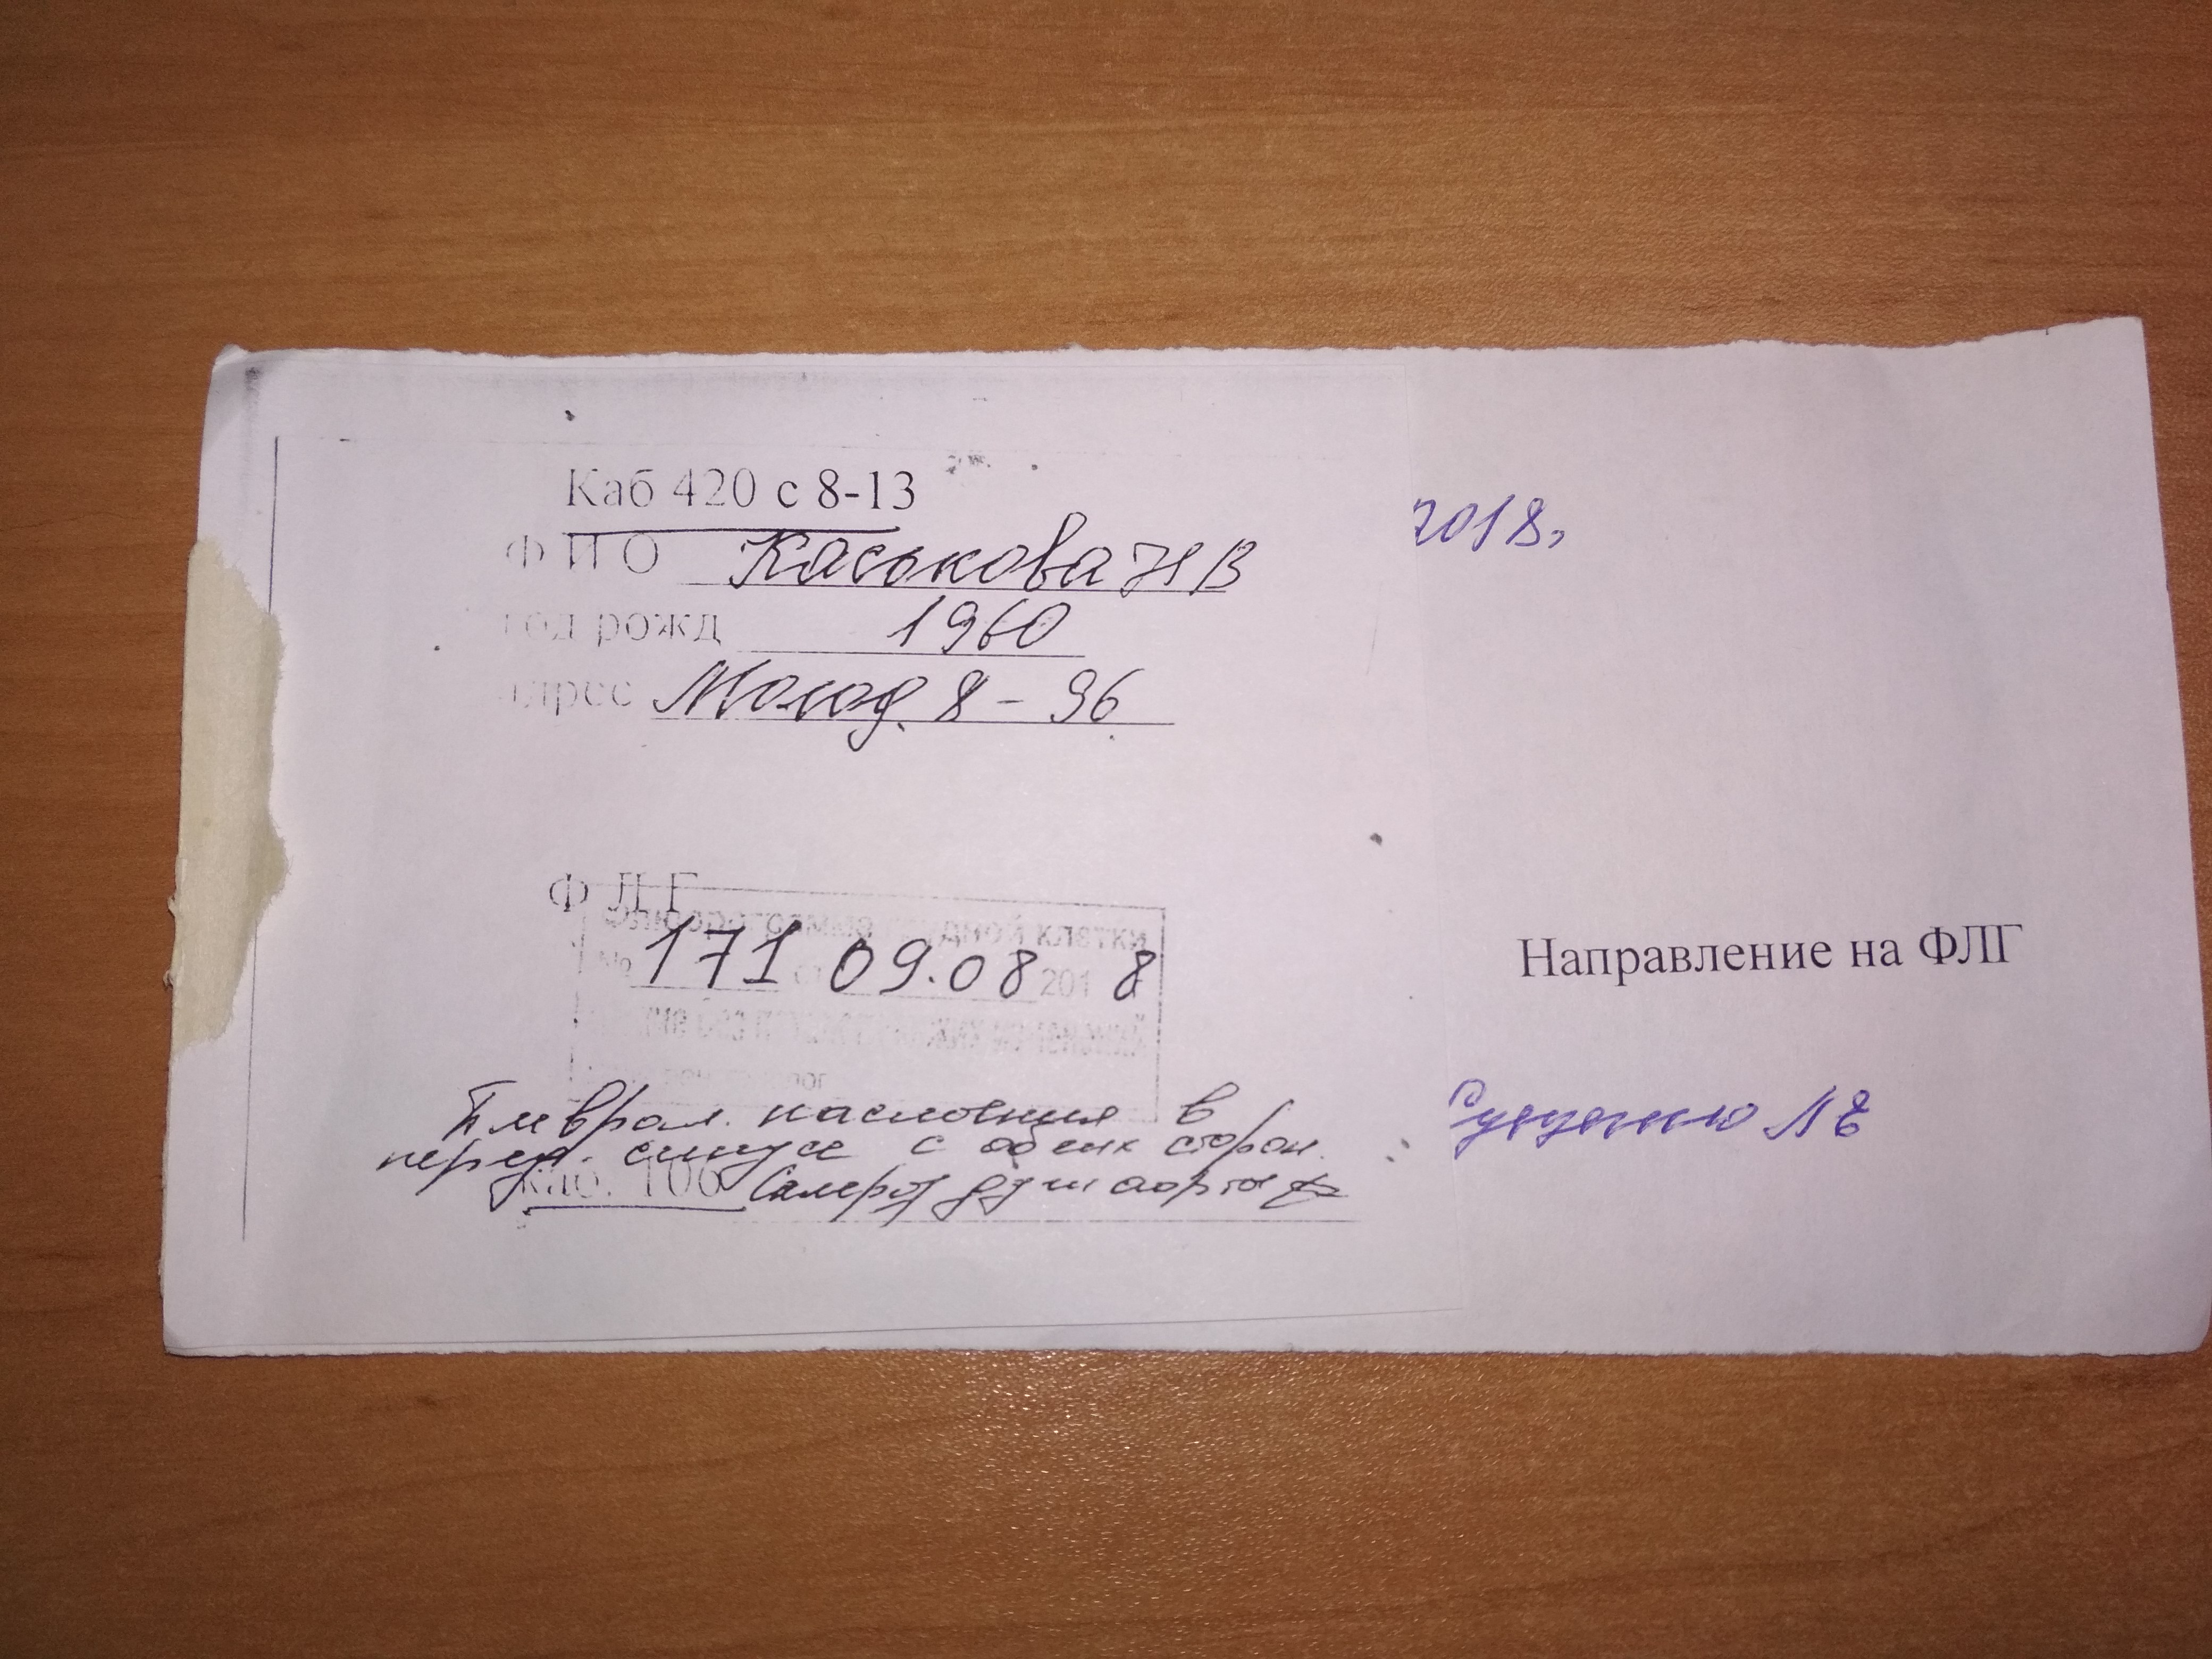 Каб 420 с 8-13
2018г
Ф И О Каськова Н В
год рожд 1960
адрес Молод. 8 - 96
Ф Л Г
Флюорограмма грудной клетки
№ 171 от 09.08 2018
Направление на ФЛГ
Плеврал. наслоения в
перед. синусе с обеих сторон.
Каб. 106 Склероз дуги аорты